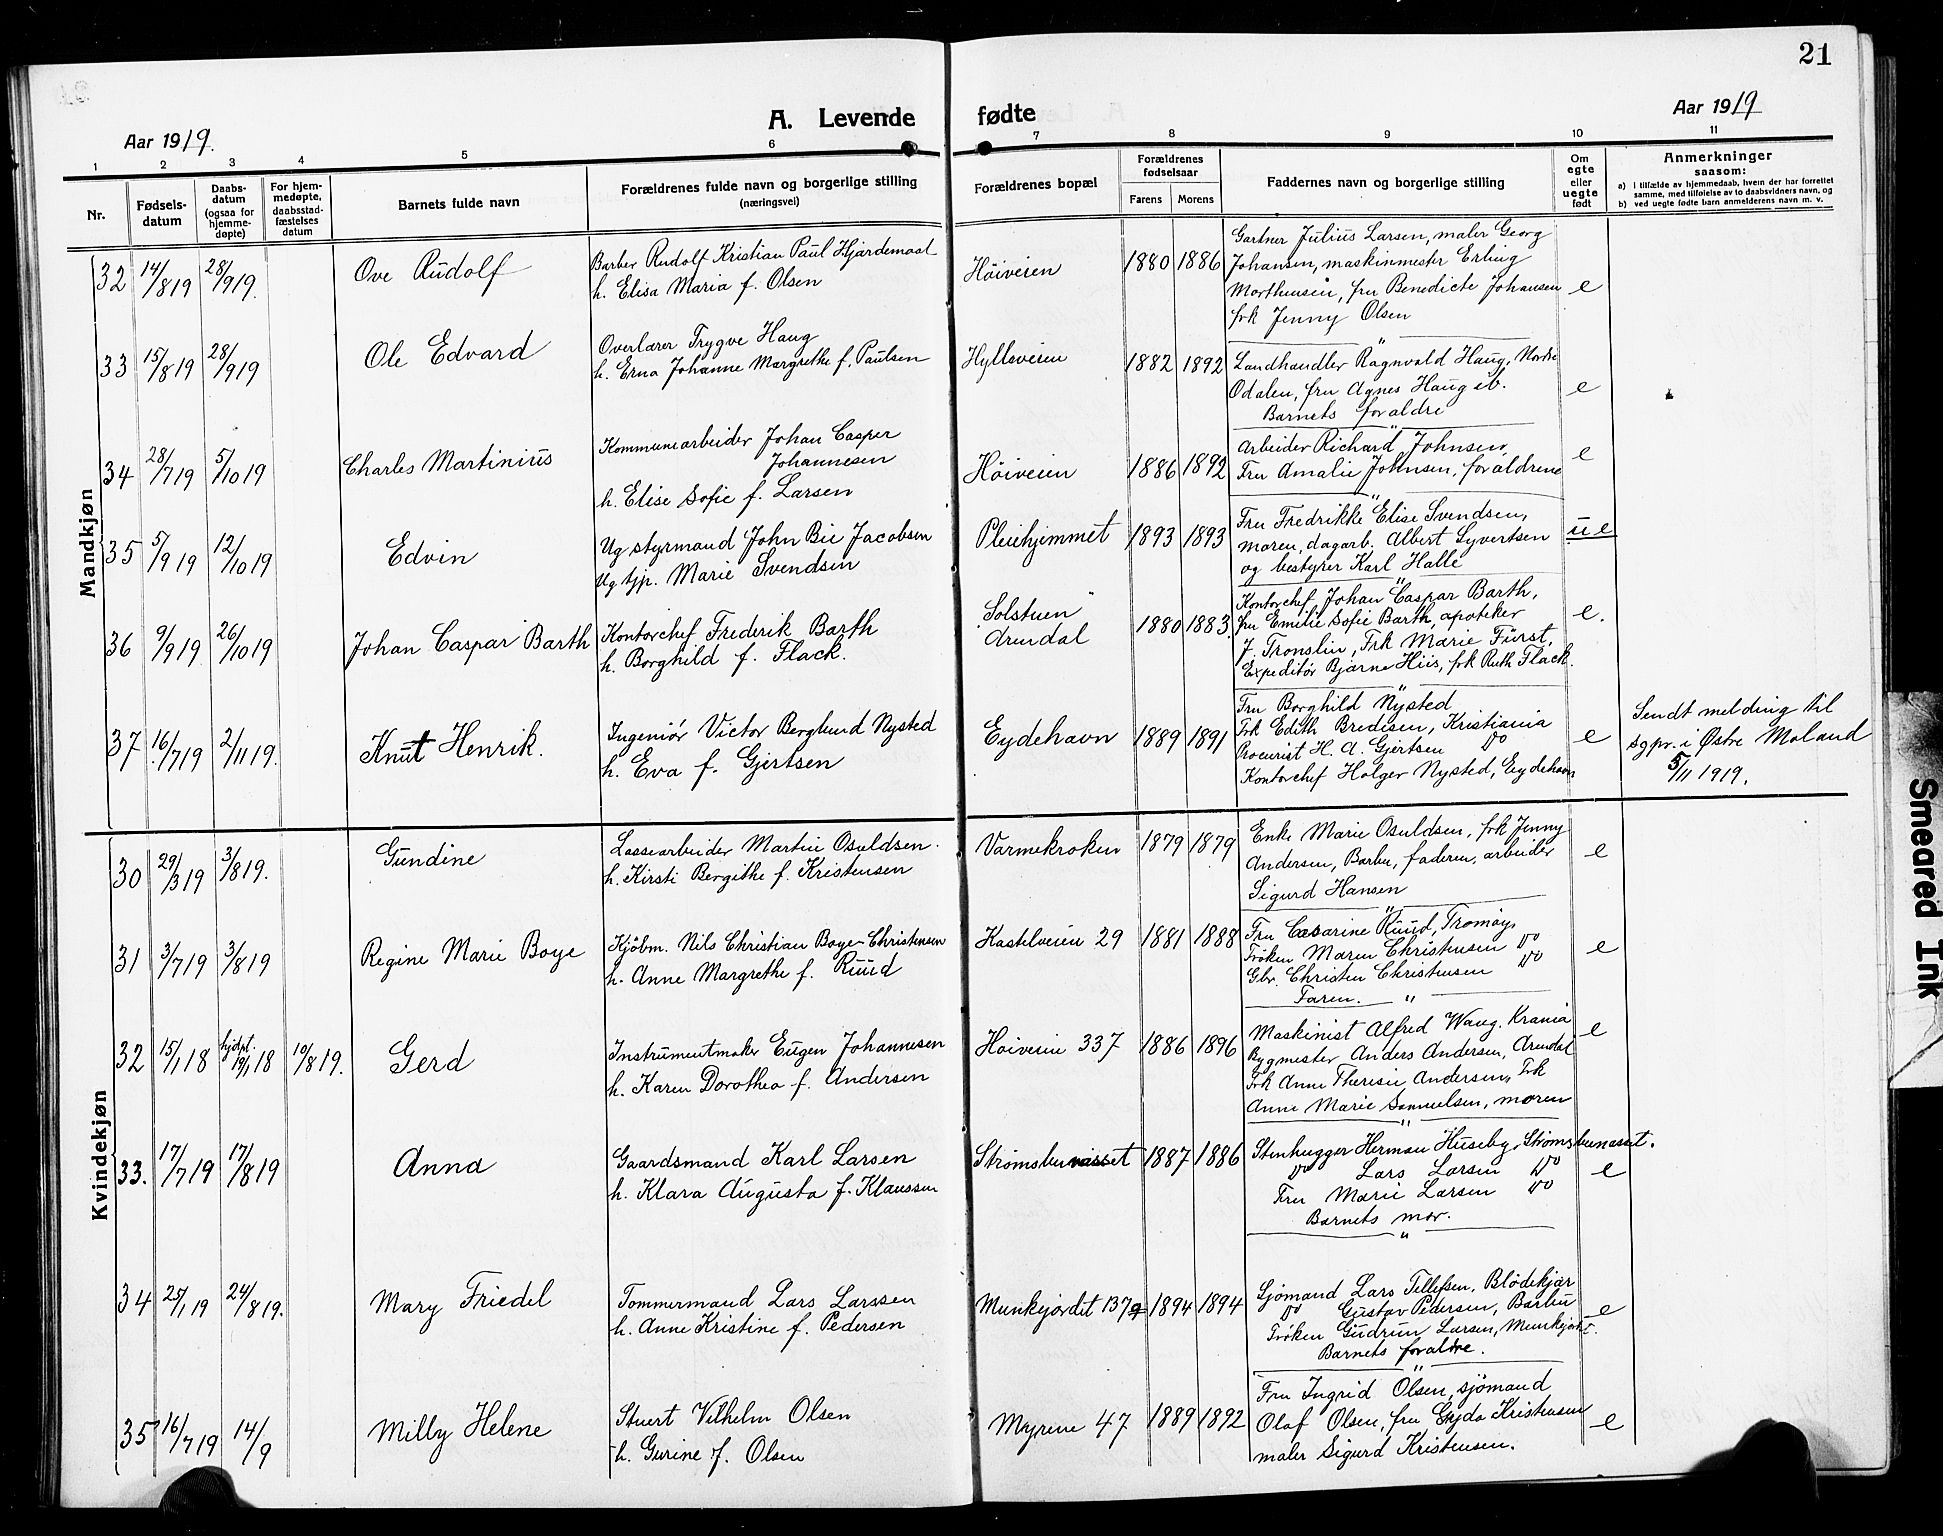 21
Aar 1919.
A. Levende fødte
Aar 1919
1 2 3 4 5 6 7 8 9 10 11
Nr.
Fødsels-
datum
Daabs-
datum
(ogsaa for
hjemme-
døpte)
For hjem-
medøpte,
daabsstad-
fæstelses
datum
Barnets fulde navn
Forældrenes fulde navn og borgerlige stilling
(næringsvei)
Forældrenes bopæl
Forældrenes
fødselsaar
Farens Morens
Faddernes navn og borgerlige stilling
Om
egte
eller
uegte
født
Anmerkninger
saasom:
a) i tilfælde av hjemmedaab, hvem der har forrettet
samme, med tilføielse av to daabsvidners navn, og
b) ved uegte fødte barn anmelderens navn m. v.
Mandkjøn
32 14/8 19 28/9 19. Ove Rudolf
Barber Rudolf Kristian Paul Hjardemaal
h. Elisa Maria f. Olsen
Høiveien 1880 1886
Gartner Julius Larsen, maler Georg
Johansen, maskinmester Erling
Morthensen, fru Benedicte Johansen
frk Jenny Olsen
e
33 15/8 19 28/9 19 Ole Edvard
Overlærer Trygve Haug
h. Erna Johanne Margrethe f. Paulsen
Hyllsveien 1882 1892
Landhandler Ragnvald Haug, Nordre
Odalen, fru Agnes Haug ib.
Barnets forældre
e
34 28/7 19 5/10 19 Charles Martinius
Kommunearbeider Johan Casper
Johannesen
h. Elise Sofie f. Larsen
Høiveien 1886 1892
Arbeider Richard Johnsen,
Fru Amalie Johnsen, forældrene
e
35 5/9 19 12/10 19 Edvin
Ug styrmand John Bie Jacobsen
Ug tjp. Marie Svendsen
Pleiehjemmet 1893 1893
Fru Fredrikke Elise Svendsen,
moren, dagarb. Albert Syvertsen
og bestyrer Karl Halle
ue
36 9/9 19 26/10 19 Johan Caspar Barth
Kontorchef Frederik Barth
h. Borghild f. Flack.
Solstuen
Arendal
1880 1883.
Kontorchef Johan Caspar Barth,
fru Emilie Sofie Barth, apoteker
J. Tronslin, Frk Marie Fürst,
Expeditør Bjarne Hiis, frk Ruth Flack.
e.
37 16/7 19 2/11 19. Knut Henrik.
Ingeniør Victor Berglund Nysted
h. Eva f. Gjertsen
Eydehavn 1889 1891
Fru Borghild Nysted
Frk Edith Bredesen, Kristiania
Procurist H. A. Gjertsen do
Kontorchef Holger Nysted, Eydehavn
e
Sendt melding til
sgpr. i Østre Moland
5/11 1919.
Kvindekjøn
30 29/3 19 3/8 19. Gundine
Lossearbeider Martin Osuldsen.
h. Kirsti Bergithe f. Kristensen
Varmekroken 1879 1879
Enke Marie Osuldsen, frk Jenny
Andersen, Barbu, faderen, arbeider
Sigurd Hansen
e
31 3/7 19 3/8 19 Regine Marie Boye
Kjøbm. Nils Christian Boye-Christensen
h. Anne Margrethe f. Ruud
Kastelveien 29 1881 1888
Fru Cæsarine Ruud, Tromøy,
Frøken Maren Christensen do
Gbr. Christen Christensen do
Faren.
e
32 15/1 18 hjdpt. 19/1 18 10/8 19. Gerd
Instrumentmaker Eugen Johannesen
h. Karen Dorothea f. Andersen
Høiveien 337 1886 1896
Maskinist Alfred Waug. Krania
Bygmester Anders Andersen, Arendal
Frk Anne Theresie Andersen, Frk
Anne Marie Samuelsen, moren
e
33. 17/7 19 17/8 19 Anna
Gaardsmand Karl Larsen
h. Klara Augusta f. Klaussen
Strømsbuvasset 1887 1886
Stenhugger Herman Huseby, Strømsbuvasset.
do Lars Larsen do
Fru Marie Larsen do
Barnets mor.
e
34 25/1 19 24/8 19. Mary Friedel
Tømmermand Lars Larssen
h. Anne Kristine f. Pedersen
Munkejordet 137 1894 1894
Sjømand Lars Tellefsen, Blødekjær
do Gustav Pedersen, Barbu
Frøken Gudrun Larsen, Munkejordet.
Barnets forældre.
e
35 16/7 19 14/9 Milly Helene
Stuert Vilhelm Olsen
h. Gurine f. Olsen
Myrene 47 1889 1892
Fru Ingrid Olsen, sjømand
Olaf Olsen, fru Gyda Kristensen
maler Sigurd Kristensen.
e
Smeared Ink